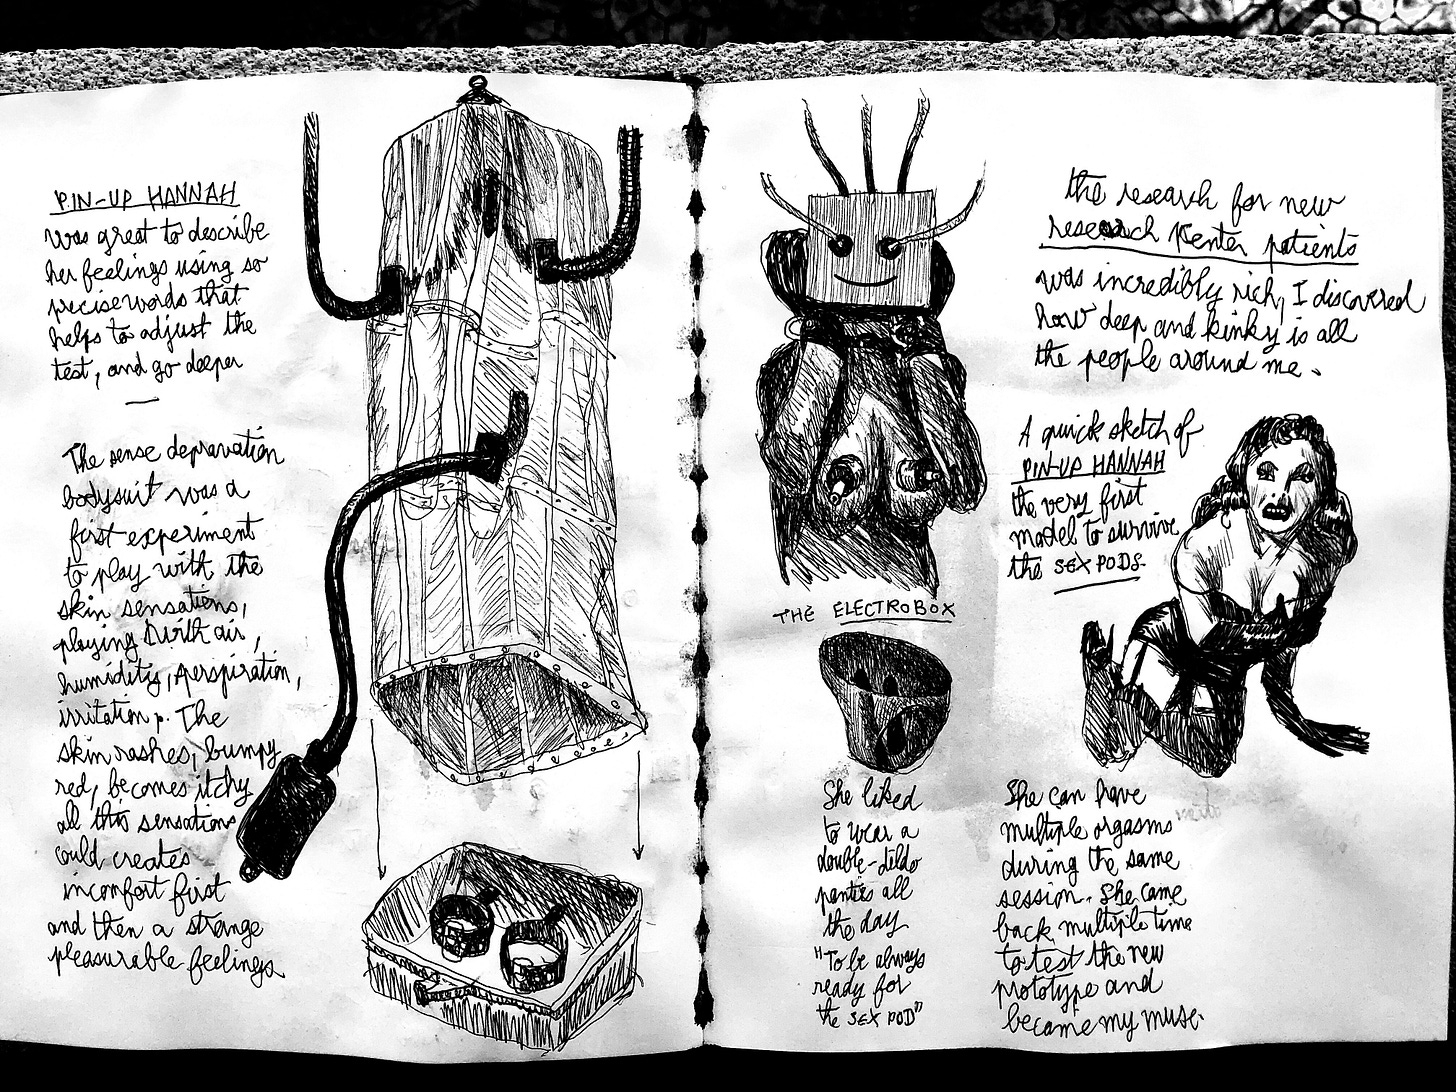 PIN-UP HANNAH
was great to describe
her feelings using so
precise words that
helps to adjust the
test, and go deeper
The sense depravation
bodysuit was a
first experiment
to play with the
skin sensations,
playing with air,
humidity, perspiration,
irritation. The
skin rashes, bumpy
red, becomes itchy
all this sensations
could creates
inconfort first
and then a strange
pleasurable feelings
THE ELECTROBOX
She liked
to wear a
double-dildo
panties all
the day
"To be always
ready for
the SEX POD"
the research for new
research Kenter patients
was incredibly rich, I discovered
how deep and kinky is all
the people around me.
A quick sketch of
PIN-UP HANNAH
the very first
model to survive
the SEX PODS.
She can have
multiple orgasms
during the same
session. She came
back multiple time
to test the new
prototype and
became my muse.